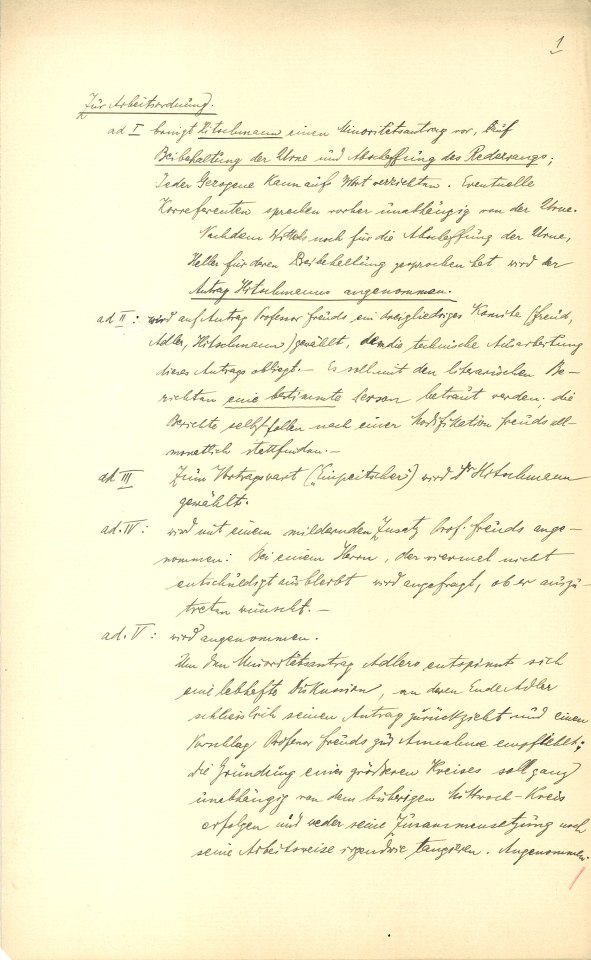 1
Zur Arbeitsordnung.
ad I bringt Hitschmann einen Minoritätsantrag vor, auf
Beibehaltung der Urne und Abschaffung des Redezwangs;
Jeder Gezogene kann aufs Wort verzichten. Eventuelle
Korreferenten sprechen vorher unabhängig von der Urne.
Nachdem Wittels noch für die Abschaffung der Urne,
Heller für deren Beibehaltung gesprochen hat wird der
Antrag Hitschmanns angenommen.
ad II: wird auf Antrag Professor Freuds ein dreigliedriges Komite (Freud,
Adler, Hitschmann) gewählt, dem die technische Ausarbeitung
dieses Antrags obliegt. — Es soll mit den literarischen Be-
richten eine bestimmte Person betraut werden; die
Berichte selbst sollen nach einer Modifikation Freuds all-
monatlich stattfinden. —
ad III Zum Vortragswart („Einpeitscher“) wird Dr Hitschmann
gewählt.
ad. IV: wird mit einem mildernden Zusatz Prof. Freuds ange-
nommen: Bei einem Herrn, der viermal nicht
entschuldigt ausbleibt wird angefragt, ob er auszu-
treten wünscht. —
ad. V: wird angenommen.
Um den Minoritätsantrag Adlers entspinnt sich
eine lebhafte Diskussion, an deren Ende Adler
schliesslich seinen Antrag zurückzieht und einen
Vorschlag Professor Freuds zur Annahme empfiehlt;
die Gründung eines größeren Kreises soll ganz
unabhängig von dem bisherigen Mittwoch-Kreis
erfolgen und weder seine Zusammensetzung noch
seine Arbeitsweise irgendwie tangieren. Angenommen.